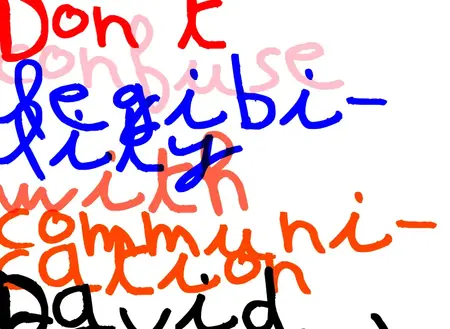 Don t
confuse
legibi-
lity
with
communi-
cation
David